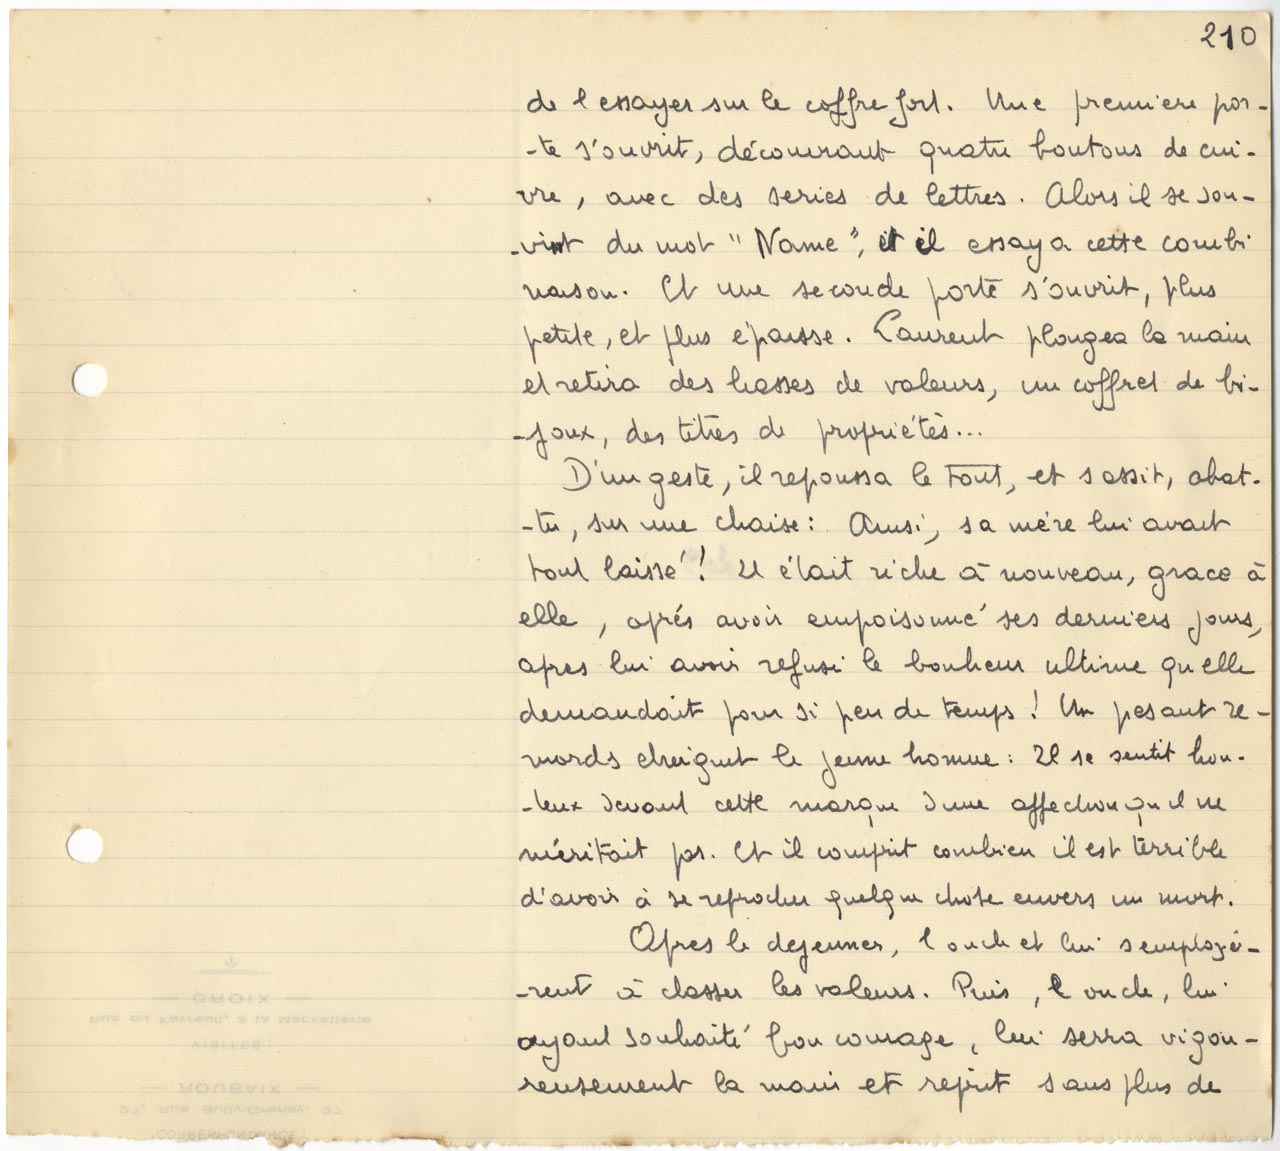 210
de l'essayer sur le coffre fort. Une premiere por-
-te s'ouvrit, découvrant quatre boutons de cui-
vre, avec des series de lettres. Alors il se sou-
-vint du mot "Name", et il essaya cette combi
naison. Et une seconde porte s'ouvrit, plus
petite, et plus épaisse. Laurent plongea la main
et retira des liasses de valeurs, un coffret de bi-
-joux, des titres de propriétés...
D'un geste, il repoussa le tout, et s'assit, abat-
-tu, sur une chaise: Ainsi, sa mère lui avait
tout laissé! Il était riche à nouveau, grace à
elle, après avoir empoisonné ses derniers jours,
apres lui avoir refusé le bonheur ultime qu'elle
demandait pour si peu de temps! Un pesant re-
mords étreignit le jeune homme: Il se sentit hon-
-teux devant cette marque d'une affection qu'il ne
méritait pas. Et il comprit combien il est terrible
d'avoir à se reprocher quelque chose envers un mort.
Apres le dejeuner, l'oncle et lui s'employè-
-rent à classer les valeurs. Puis, l'oncle, lui
ayant souhaité bon courage, lui serra vigou-
reusement la main et reprit sans plus de
CROIX
Rue du Favreuil, à la Mackellerie
VISITES:
ROUBAIX
27, Rue Bully-Grenay, 27
CORRESPONDANCE: